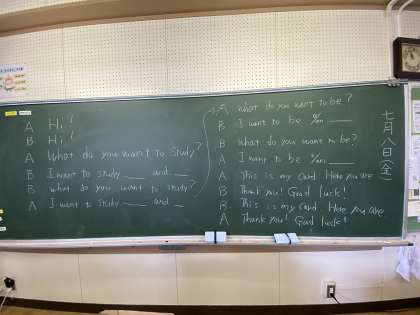 A Hi!
B Hi!
A What do you want to study?
B I want to study ___ and ___.
B What do you want to study?
A I want to study ___ and ___
A What do you want to be?
B I want to be a/an ___
B What do you want to be?
A I want to be a/an ___
A This is my card Here you are
B Thank you! Good luck!
B This is my card Here you are
A Thank you! Good luck!
七月八日(金)